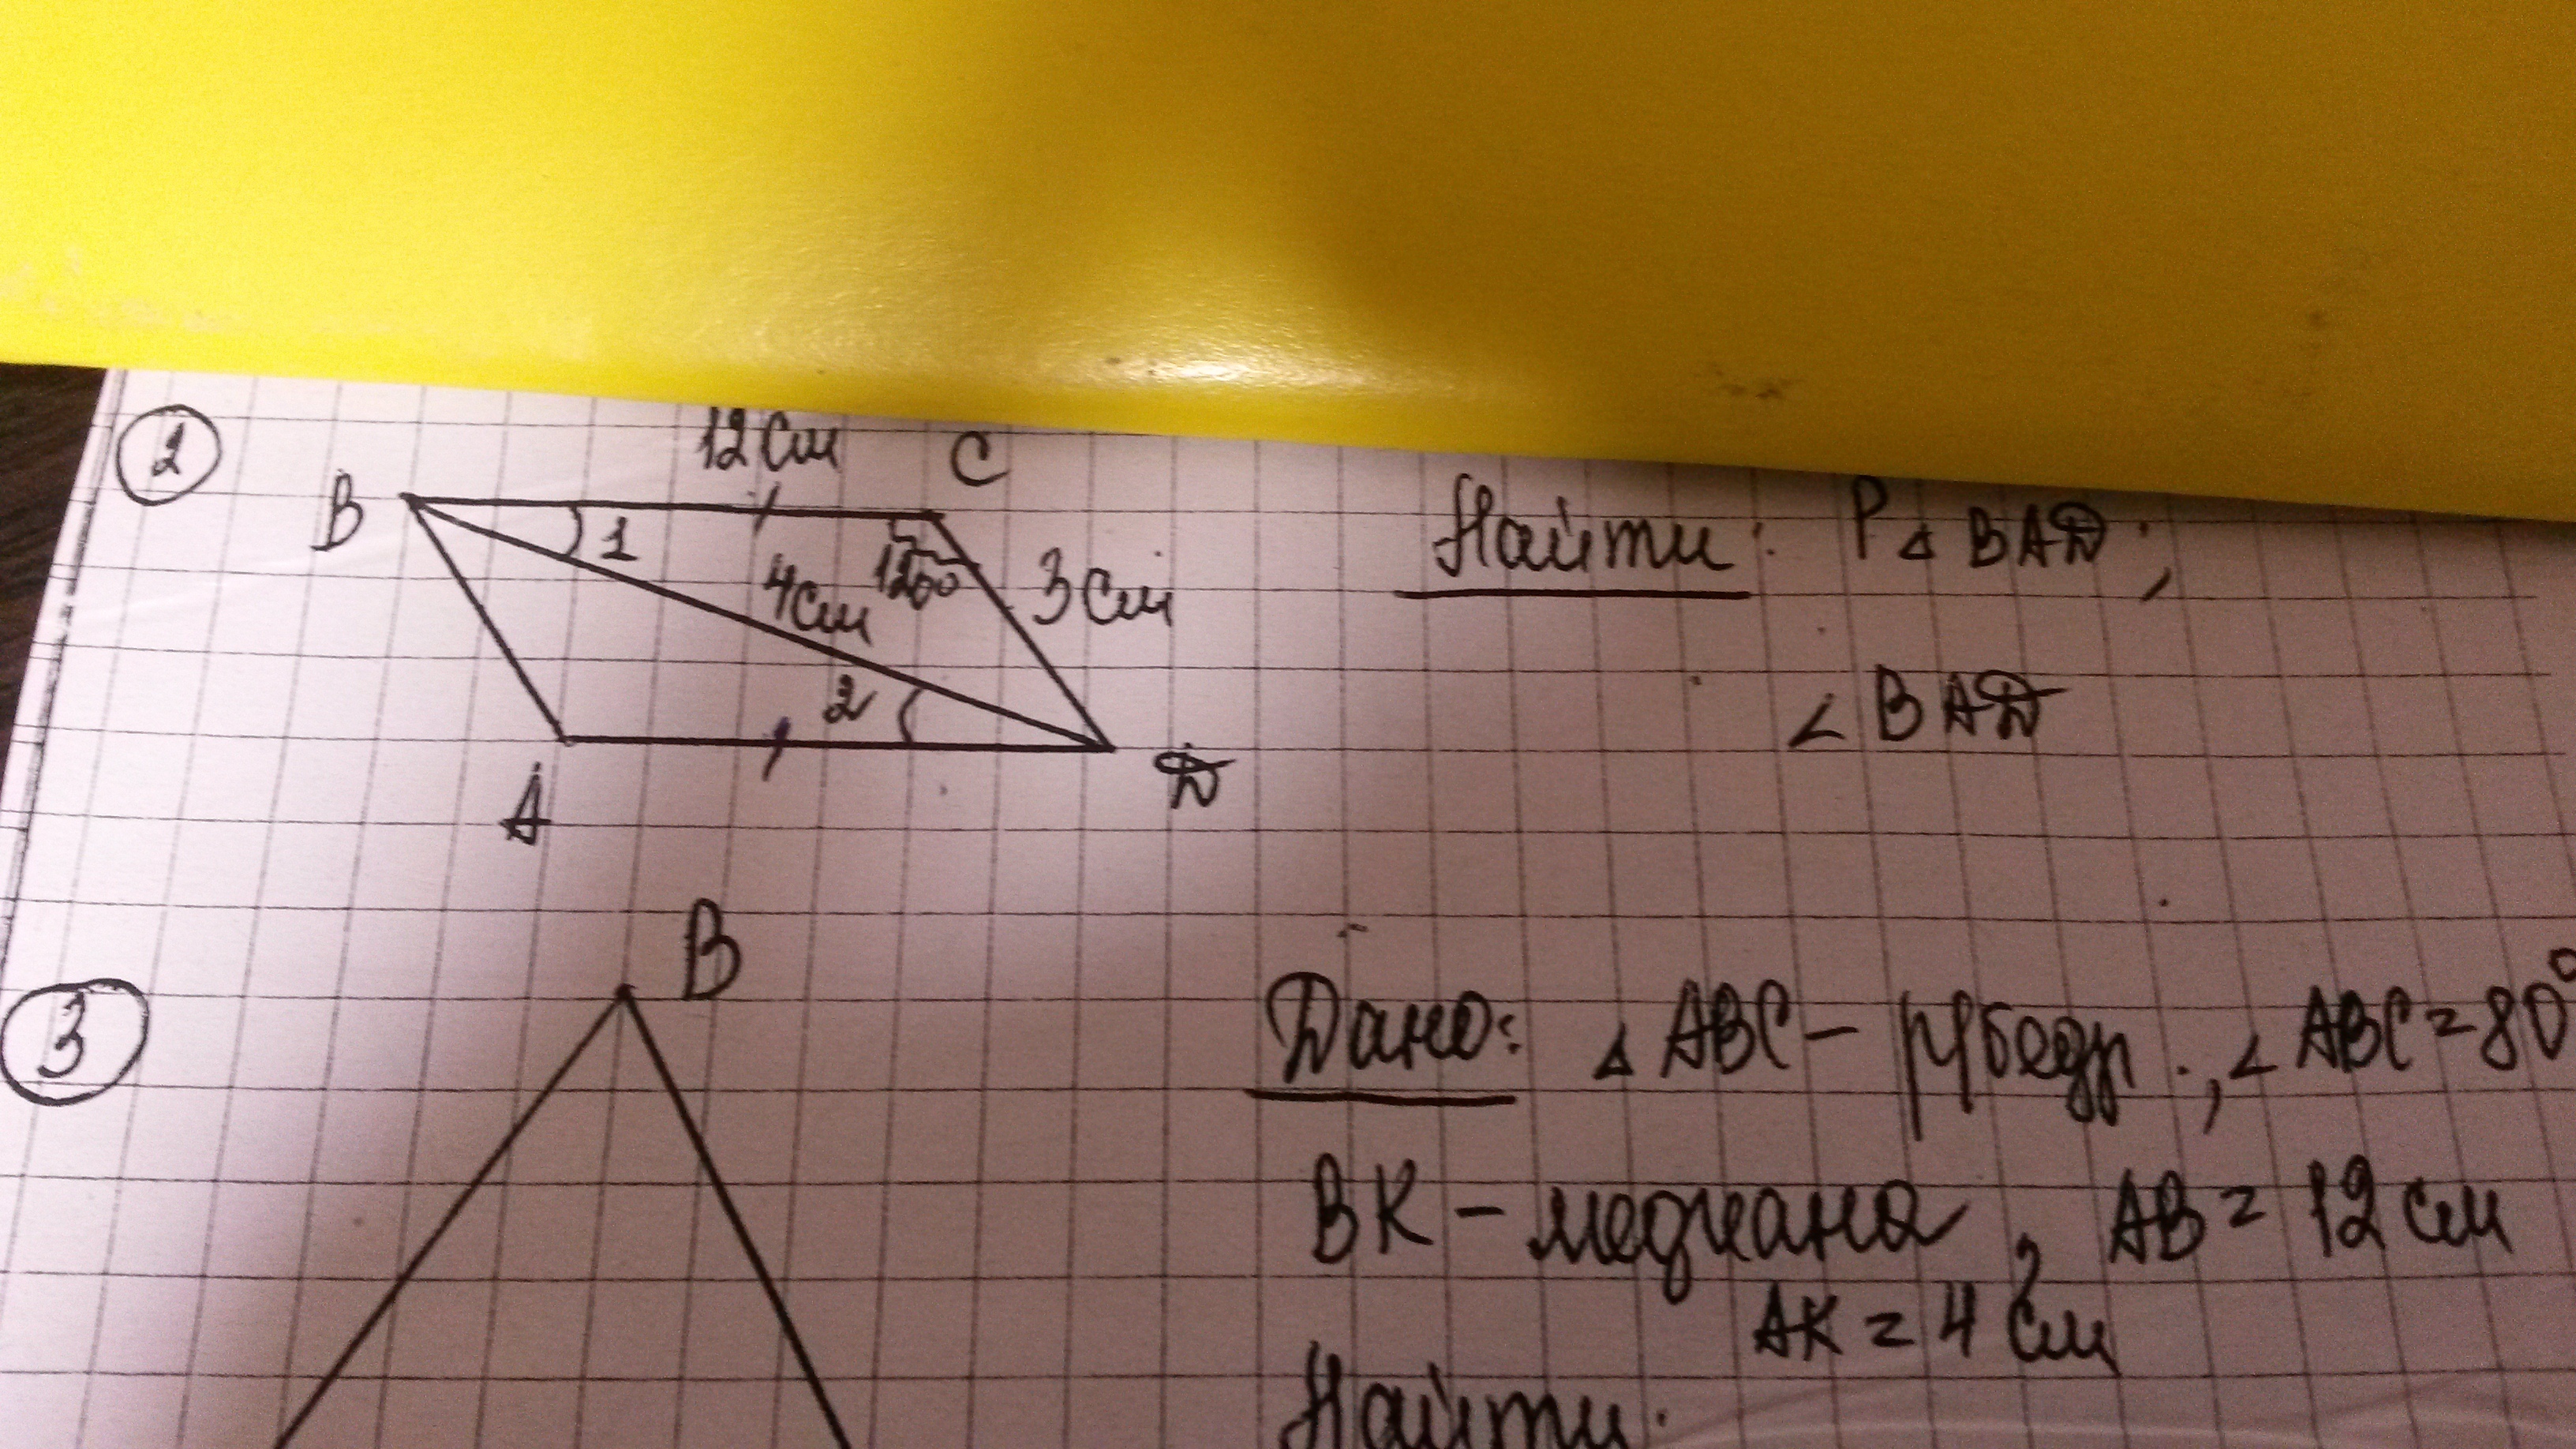 2
12 см
B
C
1
120°
4 см
3 см
2
A
D
Найти: P △ BAD;
∠ BAD
3
B
Дано: △ ABC – р/бедр., ∠ ABC = 80°
BK – медиана, AB = 12 см
AK = 4 см
Найти: